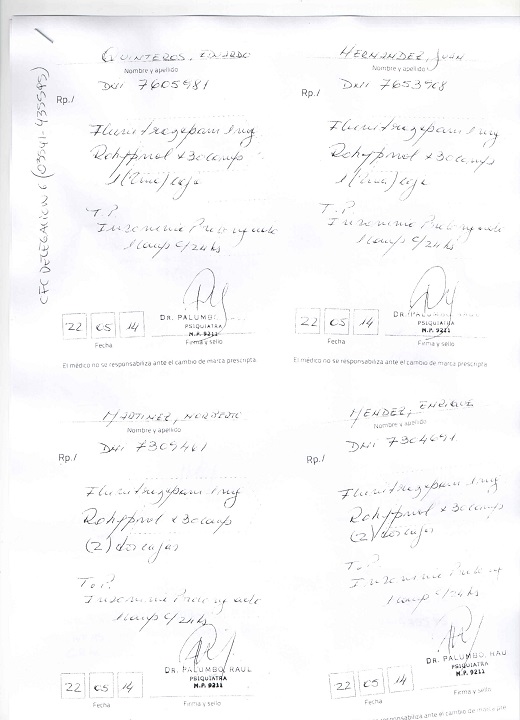 CFC DELEGACION 6 (03541-435595)
QUINTEROS, EDUARDO
Nombre y apellido
DNI 7605981
Rp./
Flunitrazepam 1mg
Rohypnol x 30 comp
1 (una) caja
T.P.
Insomnio Prolongado
1 comp c/24hs
DR. PALUMBO
PSIQUIATRA
M.P. 9211
22 05 14
Fecha
Firma y sello
El médico no se responsabiliza ante el cambio de marca prescripta.
HERNANDEZ, JUAN
Nombre y apellido
DNI 7653968
Rp./
Flunitrazepam 1mg
Rohypnol x 30 comp
1 (una) caja
T.P.
Insomnio Prolongado
1 comp c/24hs
DR. PALUMBO, RAUL
PSIQUIATRA
M.P. 9211
22 05 14
Fecha
Firma y sello
El médico no se responsabiliza ante el cambio de marca prescripta.
MARTINEZ, NORBERTO
Nombre y apellido
DNI 7309461
Rp./
Flunitrazepam 1mg
Rohypnol x 30 comp
(2) dos cajas
T.P.
Insomnio Prolongado
1 comp c/24hs
DR. PALUMBO, RAUL
PSIQUIATRA
M.P. 9211
22 05 14
Fecha
Firma y sello
MENDEZ, ENRIQUE
Nombre y apellido
DNI 7304691
Rp./
Flunitrazepam 1mg
Rohypnol x 30 comp
(2) dos cajas
T.P.
Insomnio Prolong
1 comp c/24hs
DR. PALUMBO, RAU
PSIQUIATRA
M.P. 9211
22 05 14
Fecha
Firma y sello
responsabiliza ante el cambio de marca pre